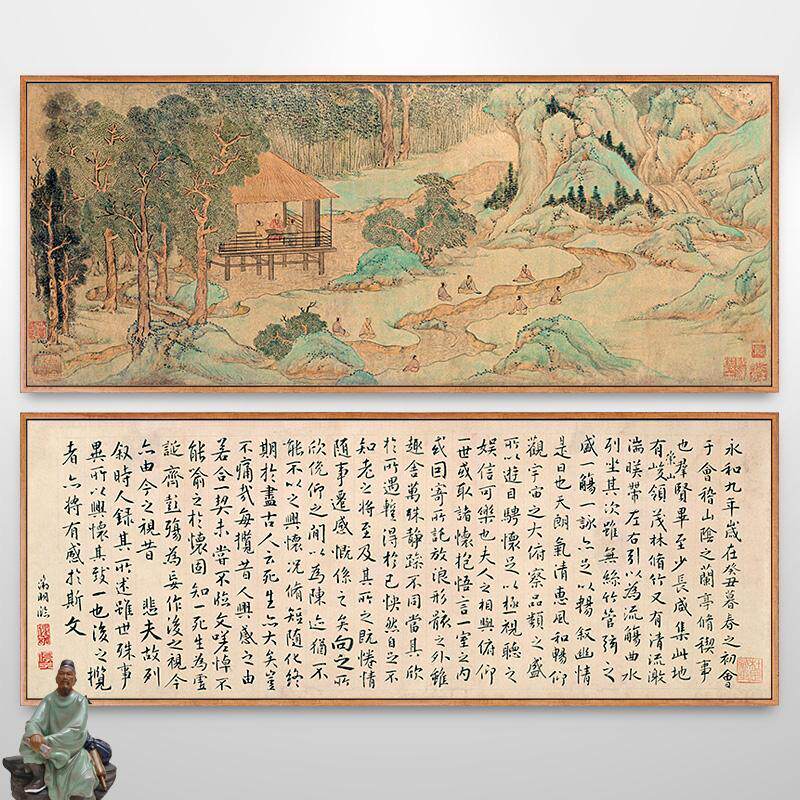 永和九年歲在癸丑暮春之初會
于會稽山陰之蘭亭脩稧事
也羣賢畢至少長咸集此地
有崇山峻領茂林脩竹又有清流激
湍暎帶左右引以為流觴曲水
列坐其次雖無絲竹管弦之
盛一觴一詠亦足以暢叙幽情
是日也天朗氣清惠風和暢仰
觀宇宙之大俯察品類之盛
所以遊目騁懷足以極視聽之
娛信可樂也夫人之相與俯仰
一世或取諸懷抱悟言一室之內
或因寄所託放浪形骸之外雖
趣舍萬殊靜躁不同當其欣
於所遇蹔得於己怏然自足不
知老之將至及其所之既惓情
隨事遷感慨係之矣向之所
欣俛仰之間以為陳迹猶不
能不以之興懷況脩短隨化終
期於盡古人云死生亦大矣豈
不痛哉每攬昔人興感之由
若合一契未嘗不臨文嗟悼不
能喻之於懷固知一死生為虛
誕齊彭殤為妄作後之視今
亦由今之視昔 悲夫故列
叙時人錄其所述雖世殊事
異所以興懷其致一也後之攬
者亦將有感於斯文
徵明臨